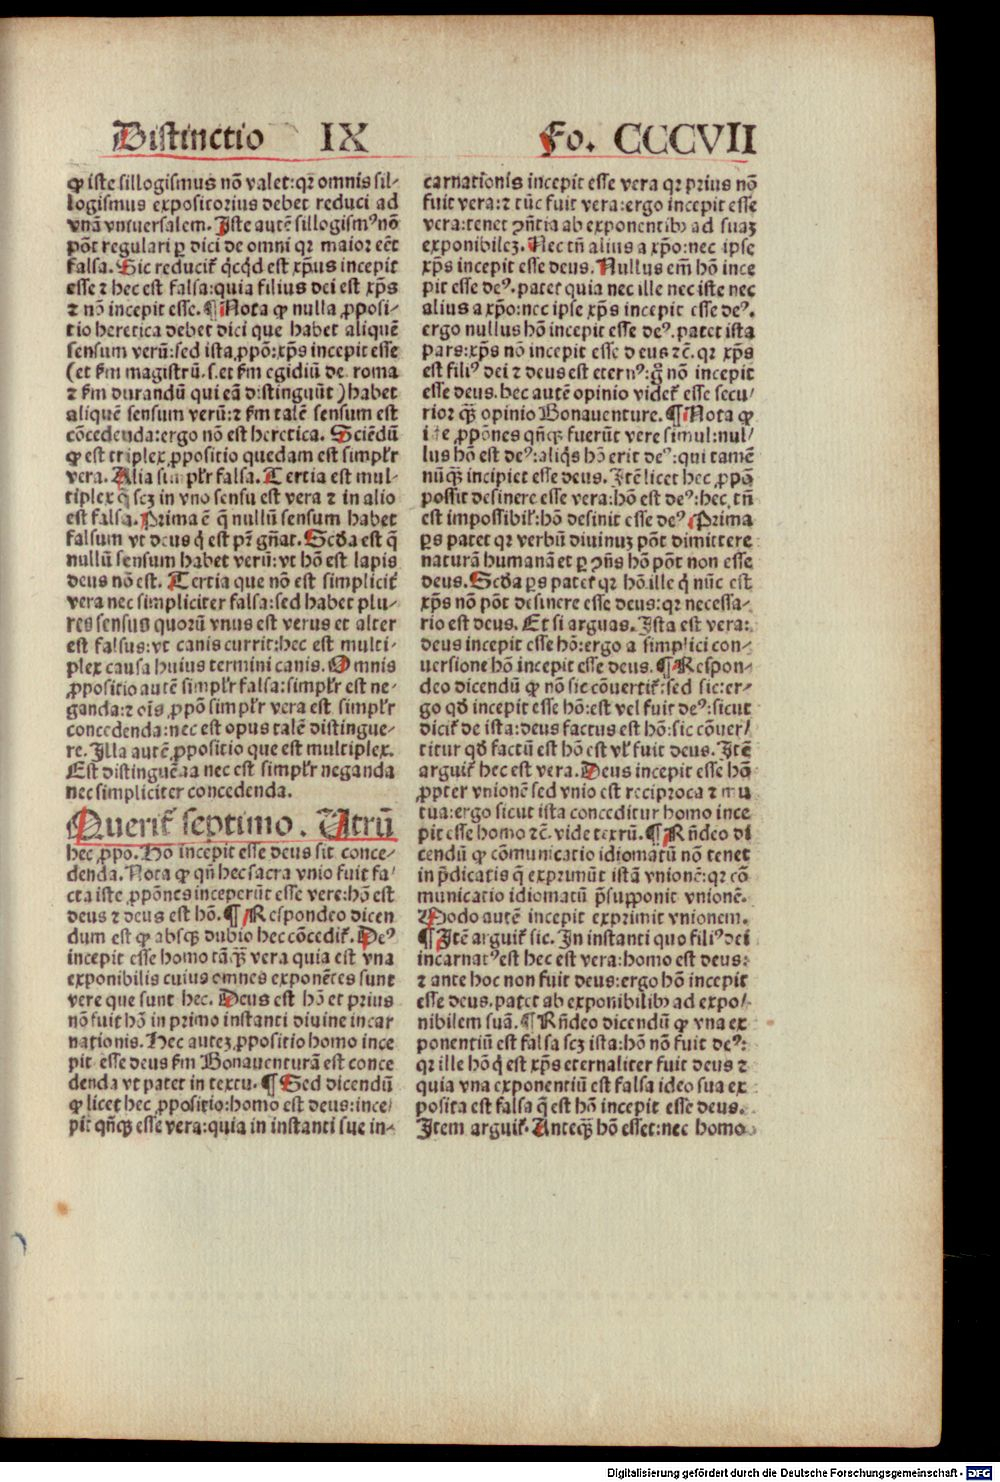 Distinctio IX Fo. CCCVII
ꝙ iste sillogismus nõ valet:qꝛ omnis sil-
logismus expositorius debet reduci ad
vnã vniuersalem. Iste autẽ sillogismꝰ nõ
põt regulari ꝑ dici de omni qꝛ maior eẽt
falsa. Sic reducit᷑ q̃cq̃d est xp̃us incepit
esse ⁊ hec est falsa:quia filius dei est xp̃s
⁊ nõ incepit esse. ¶ Nota ꝙ nulla ꝓposi-
tio heretica debet dici que habet aliquẽ
sensum verũ:sed ista ꝓpõ:xp̃s incepit esse
(et ẜm magistrũ.s.et ẜm egidiũ de roma
⁊ ẜm durandũ qui eã distinguũt) habet
aliquẽ sensum verũ:⁊ ẜm talẽ sensum est
cõcedenda:ergo nõ est heretica. Sciẽdũ
ꝙ est triplex ꝓpositio quedam est simpl̃r
vera. Alia simpl̃r falsa. Tertia est mul-
tiplex q̃ scꝫ in vno sensu est vera ⁊ in alio
est falsa. Prima ẽ q̃ nullũ sensum habet
falsum vt deus q̃ est pr̃ gñat. Scd̃a est q̃
nullũ sensum habet verũ:vt hõ est lapis
deus nõ est. Tertia que nõ est simplicit᷑
vera nec simpliciter falsa:sed habet plu-
res sensus quorũ vnus est verus et alter
est falsus:vt canis currit:hec est multi-
plex causa huius termini canis. Omnis
ꝓpositio autẽ simpl̃r falsa:simpl̃r est ne-
ganda:⁊ oĩs ꝓpõ simpl̃r vera est simpl̃r
concedenda:nec est opus talẽ distingue-
re. Illa autẽ ꝓpositio que est multiplex.
Est distinguẽda nec est simpl̃r neganda
nec simpliciter concedenda.
Querit᷑ septimo. Vtrũ
hec ꝓpo. Hõ incepit esse deus sit conce-
denda. Nota ꝙ qñ hec sacra vnio fuit fa-
cta iste ꝓpõnes inceperũt esse vere:hõ est
deus ⁊ deus est hõ. ¶ Respondeo dicen
dum est ꝙ absqꝫ dubio hec cõcedit᷑. Deꝰ
incepit esse homo tãqꝫ̃ vera quia est vna
exponibilis cuius omnes exponẽtes sunt
vere que sunt hec. Deus est hõ et prius
nõ fuit hõ in primo instanti diuine incar
nationis. Hec auteꝫ ꝓpositio homo ince
pit esse deus ẜm Bonauenturã est conce
denda vt patet in textu. ¶ Sed dicendũ
ꝙ licet hec ꝓpositio:homo est deus:ince-
pit qñqꝫ esse vera:quia in instanti sue in-
carnationis incepit esse vera qꝛ prius nõ
fuit vera:⁊ tũc fuit vera:ergo incepit esse
vera:tenet ꝯñtia ab exponentibꝫ ad suaꝫ
exponibileꝫ. Nec tñ alius a xp̃o:nec ipse
xp̃s incepit esse deus. Nullus em̃ hõ ince
pit esse deꝰ. patet quia nec ille nec iste nec
alius a xp̃o:nec ipse xp̃s incepit esse deꝰ.
ergo nullus hõ incepit esse deꝰ. patet ista
pars:xp̃s nõ incepit esse deus ⁊c̃. qꝛ xp̃s
est filiꝰ dei ⁊ deus est eternꝰ:g̃ nõ incepit
esse deus. hec autẽ opinio videt᷑ esse secu-
rior qꝫ̃ opinio Bonauenture. ¶ Nota ꝙ
ꝓpõnes qñqꝫ fuerũt vere simul:nul-
lus hõ est deꝰ:aliq̃s hõ erit deꝰ:qui tamẽ
nũqꝫ̃ incipiet esse deus. Itẽ licet hec ꝓpõ
possit desinere esse vera:hõ est deꝰ:hec tñ
est impossibil᷑:hõ desinit esse deꝰ. Prima
ꝑs patet qꝛ verbũ diuinuꝫ põt dimittere
naturã humanã et ꝑ ꝯñs hõ põt non esse
deus. Scd̃a ꝑs patet qꝛ hõ ille q̃ nũc est
xp̃s nõ põt desinere esse deus:qꝛ necessa-
rio est deus. Et si arguas. Ista est vera:
deus incepit esse hõ:ergo a simplici con-
uersione hõ incepit esse deus. ¶ Respon-
deo dicendũ ꝙ nõ sic cõuertit᷑:sed sic:er-
go qd̃ incepit esse hõ:est vel fuit deꝰ:sicut
dicit᷑ de ista:deus factus est hõ:sic cõuer-
titur qd̃ factũ est hõ est vl̃ fuit deus. Itẽ
arguit᷑ hec est vera. Deus incepit esse hõ
ꝓpter vnionẽ sed vnio est reciproca ⁊ mu
tua:ergo sicut ista conceditur homo ince
pit esse homo ⁊c̃. vide textũ. ¶ Rñdeo di
cendũ ꝙ cõmunicatio idiomatũ nõ tenet
in p̃dicatis q̃ exprimũt istã vnionẽ:qꝛ cõ
municatio idiomatũ p̃supponit vnionẽ.
Modo autẽ incepit exprimit vnionem.
¶ Itẽ arguit᷑ sic. In instanti quo filiꝰ dei
incarnatꝰ est hec est vera:homo est deus:
⁊ ante hoc non fuit deus:ergo hõ incepit
esse deus. patet ab exponibilibꝫ ad expo-
nibilem suã. ¶ Rñdeo dicendũ ꝙ vna ex
ponentiũ est falsa scꝫ ista:hõ nõ fuit deꝰ:
qꝛ ille hõ q̃ est xp̃s eternaliter fuit deus ⁊
quia vna exponentiũ est falsa ideo sua ex
posita est falsa q̃ est hõ incepit esse deus.
Item arguit᷑. Anteqꝫ̃ hõ esset:nec homo
Digitalisierung gefördert durch die Deutsche Forschungsgemeinschaft - DFG